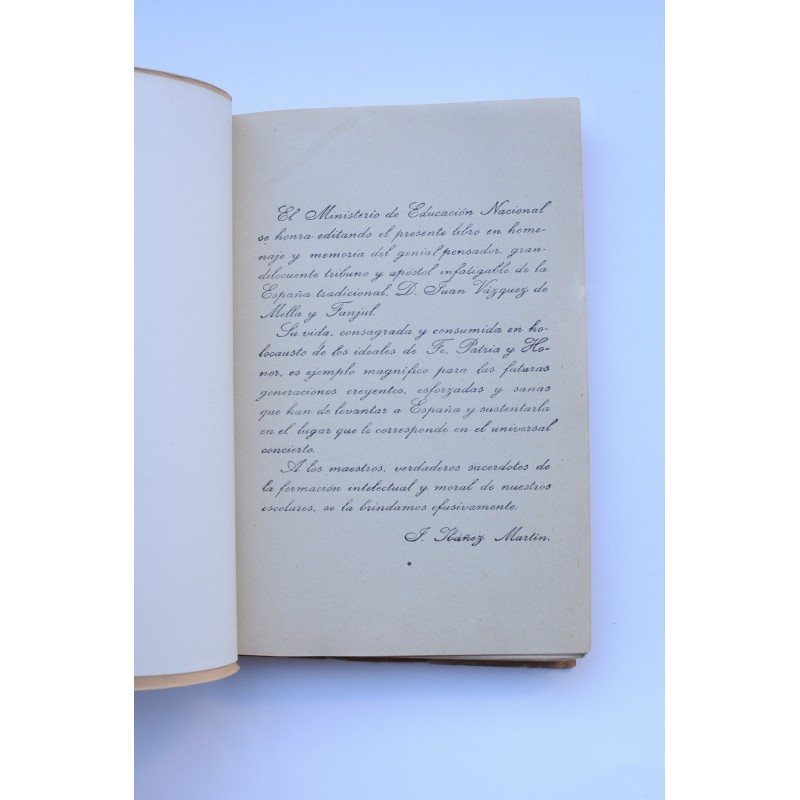 El Ministerio de Educación Nacional
se honra editando el presente libro en home-
naje y memoria del genial pensador, gran-
dilocuente tribuno y apóstol infatigable de la
España tradicional, D. Juan Vázquez de
Mella y Fanjul.
Su vida, consagrada y consumida en ho-
locausto de los ideales de Fe, Patria y Ho-
nor, es ejemplo magnífico para las futuras
generaciones creyentes, esforzadas y sanas
que han de levantar a España y sustentarla
en el lugar que le corresponde en el universal
concierto.
A los maestros, verdaderos sacerdotes de
la formación intelectual y moral de nuestros
escolares, se la brindamos efusivamente.
J. Ibáñez Martín.